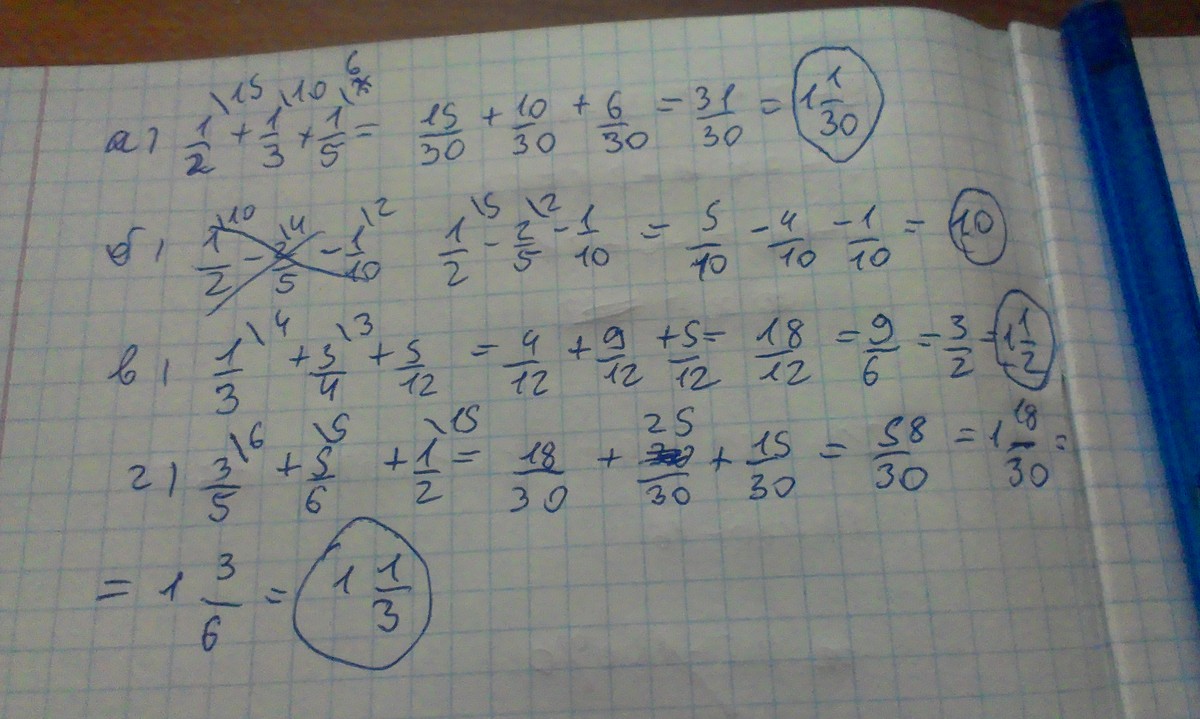 а) 1/2 \15 + 1/3 \10 + 1/5 \6 = 15/30 + 10/30 + 6/30 = 31/30 = 1 1/30
б) 1/2 \10 - 2/5 \4 - 1/10 \2 1/2 \5 - 2/5 \2 - 1/10 = 5/10 - 4/10 - 1/10 = 10
в) 1/3 \4 + 3/4 \3 + 5/12 = 4/12 + 9/12 + 5/12 = 18/12 = 9/6 = 3/2 = 1 1/2
г) 3/5 \6 + 5/6 \5 + 1/2 \15 = 18/30 + 25/30 + 15/30 = 58/30 = 1 18/30 =
= 1 3/6 = 1 1/3